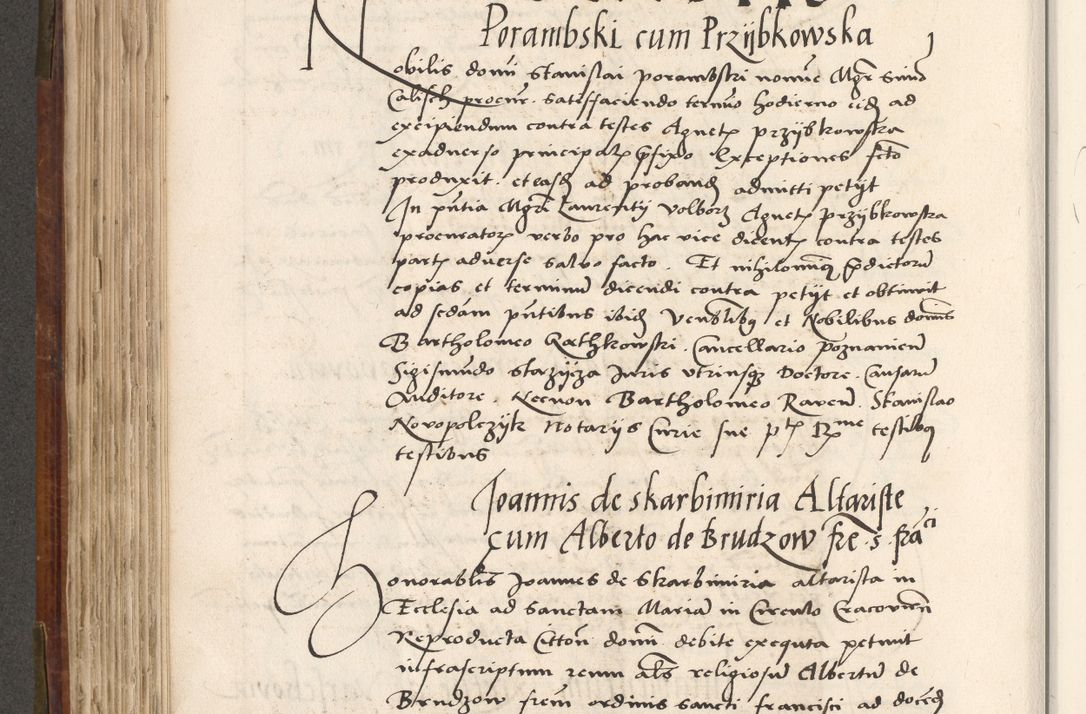 Porambski cum Przijbkowska
Nobilis domi Stanislai Porambski nomine Mgr Simo
Calisch procur. satisfaciendo termino hodierno eid ad
excipiendum contra testes Agnet Przijbkowska
exadverso principal pfixo Exceptiones scto
produxit. et easd ad proband admitti petijt
In pntia Mgri Laurentij Volborz Agnet Przijbkowska
procurator verbo pro hac vice dicent contra testes
part adverse salvo facto. Et nihilominq pdictoru
copias et terminu dicendi contra petijt et obtinuit
ad sedam pntibus ibid Venblibq et Nobilibus domis
Bartholomeo Cancellario Poznanien
Sigismundo Stazijza Juris utriusq Doctore. Causaru
Auditore. Necnon Bartholomeo Raven. Stanislao
Novopolczijk Notarijs Curie sue testibq
testibus
Joannis de Skarbimiria Altariste
cum Alberto de Brudzow fre. s. fraci
Honorablis Joannes de Skarbimiria altarista in
Ecclesia ad Sanctam Maria in Circulo Cracovien
Reproducta Citton domi debite exequta petiuit
infrascriptum reum als religiosu Albertu de
Brudzow frem ordinis sancti francisci ad doced